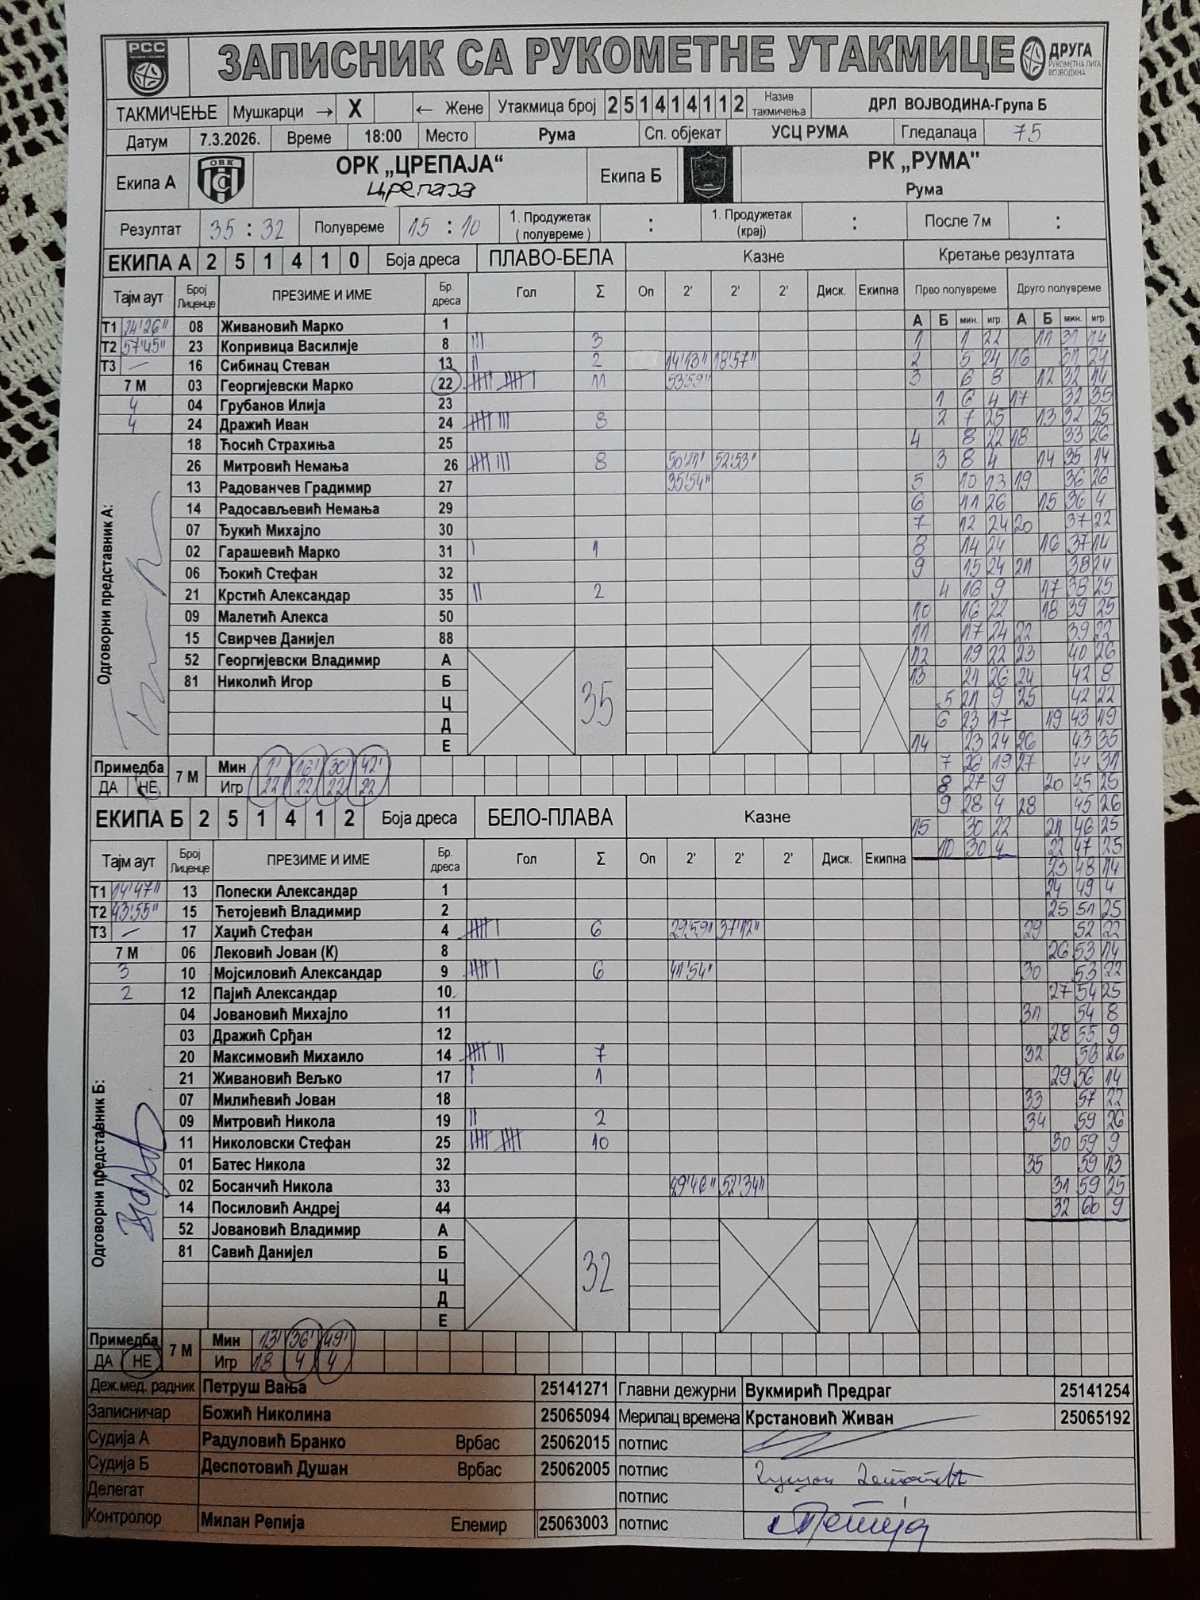 РСС
ЗАПИСНИК СА РУКОМЕТНЕ УТАКМИЦЕ
ДРУГА
РУКОМЕТНА ЛИГА
ВОЈВОДИНА
ТАКМИЧЕЊЕ Мушкарци → X ← Жене Утакмица број 251414112 Назив такмичења ДРЛ ВОЈВОДИНА-Група Б
Датум 7.3.2026. Време 18:00 Место Рума Сп. објекат УСЦ РУМА Гледалаца 75
Екипа А ОРК „ЦРЕПАЈА“ Црепаја Екипа Б РК „РУМА" Рума
Резултат 35 : 32 Полувреме 15 : 10 1. Продужетак ( полувреме ) : 1. Продужетак (крај) : После 7м :
ЕКИПА А 2 5 1 4 1 0 Боја дреса ПЛАВО-БЕЛА Казне Кретање резултата
Тајм аут Број Лиценце ПРЕЗИМЕ И ИМЕ Бр. дреса Гол Σ Оп 2' 2' 2' Диск. Екипна Прво полувреме Друго полувреме
А Б мин. игр. А Б мин. игр.
Т1 24'26" 08 Живановић Марко 1
Т2 57'45" 23 Копривица Василије 8 3
Т3 – 16 Сибинац Стеван 13 2 14'13" 18'57"
7 М 03 Георгијевски Марко 22 11 53'59"
4 04 Грубанов Илија 23
4 24 Дражић Иван 24 8
18 Ћосић Страхиња 25
26 Митровић Немања 26 8 50'21" 52'53"
13 Радованчев Градимир 27 35'54"
14 Радосављевић Немања 29
07 Ђукић Михајло 30
02 Гарашевић Марко 31 1
06 Ђокић Стефан 32
21 Крстић Александар 35 2
09 Малетић Алекса 50
15 Свирчев Данијел 88
52 Георгијевски Владимир А
81 Николић Игор Б
Ц
Д
Е
35
Одговорни представник А:
Примедба ДА НЕ 7 М Мин 1' 16' 30' 42'
Игр 22 22 22 22
ЕКИПА Б 2 5 1 4 1 2 Боја дреса БЕЛО-ПЛАВА Казне
Тајм аут Број Лиценце ПРЕЗИМЕ И ИМЕ Бр. дреса Гол Σ Оп 2' 2' 2' Диск. Екипна
Т1 14'47" 13 Попески Александар 1
Т2 43'55" 15 Ћетојевић Владимир 2
Т3 – 17 Хаџић Стефан 4 6 29'59" 37'12"
7 М 06 Лековић Јован (К) 8
3 10 Мојсиловић Александар 9 6 41'54"
2 12 Пајић Александар 10
04 Јовановић Михајло 11
03 Дражић Срђан 12
20 Максимовић Михаило 14 7
21 Живановић Вељко 17 1
07 Милићевић Јован 18
09 Митровић Никола 19 2
11 Николовски Стефан 25 10
01 Батес Никола 32
02 Босанчић Никола 33 29'46" 52'34"
14 Посиловић Андреј 44
52 Јовановић Владимир А
81 Савић Данијел Б
Ц
Д
Е
32
Одговорни представник Б:
Примедба ДА НЕ 7 М Мин 13' 36' 49'
Игр 18 4 4
1 1 22 11 31 14
2 5 24 16 31 24
3 6 8 12 32 14
1 6 4 17 32 35
2 7 25 13 32 25
4 8 22 18 33 26
3 8 4 14 35 14
5 10 13 19 36 26
6 11 26 15 36 4
7 12 24 20 37 22
8 14 24 16 37 14
9 15 24 21 38 24
4 16 9 17 38 25
10 16 22 18 39 25
11 17 24 22 39 22
12 19 22 23 40 26
13 21 26 24 42 8
5 21 9 25 42 22
6 23 17 19 43 19
14 23 24 26 43 35
7 26 19 27 44 31
8 27 9 20 45 25
9 28 4 28 45 26
15 30 22 21 46 25
10 30 4 22 47 25
23 48 14
24 49 4
25 51 25
29 52 22
26 53 14
30 53 22
27 54 25
31 54 8
28 55 9
32 56 26
29 56 14
33 57 22
34 59 26
30 59 9
35 59 13
31 59 25
32 60 9
Деж.мед. радник Петруш Вања 25141271 Главни дежурни Вукмирић Предраг 25141254
Записничар Божић Николина 25065094 Мерилац времена Крстановић Живан 25065192
Судија А Радуловић Бранко Врбас 25062015 потпис
Судија Б Деспотовић Душан Врбас 25062005 потпис
Делегат потпис
Контролор Милан Репија Елемир 25063003 потпис